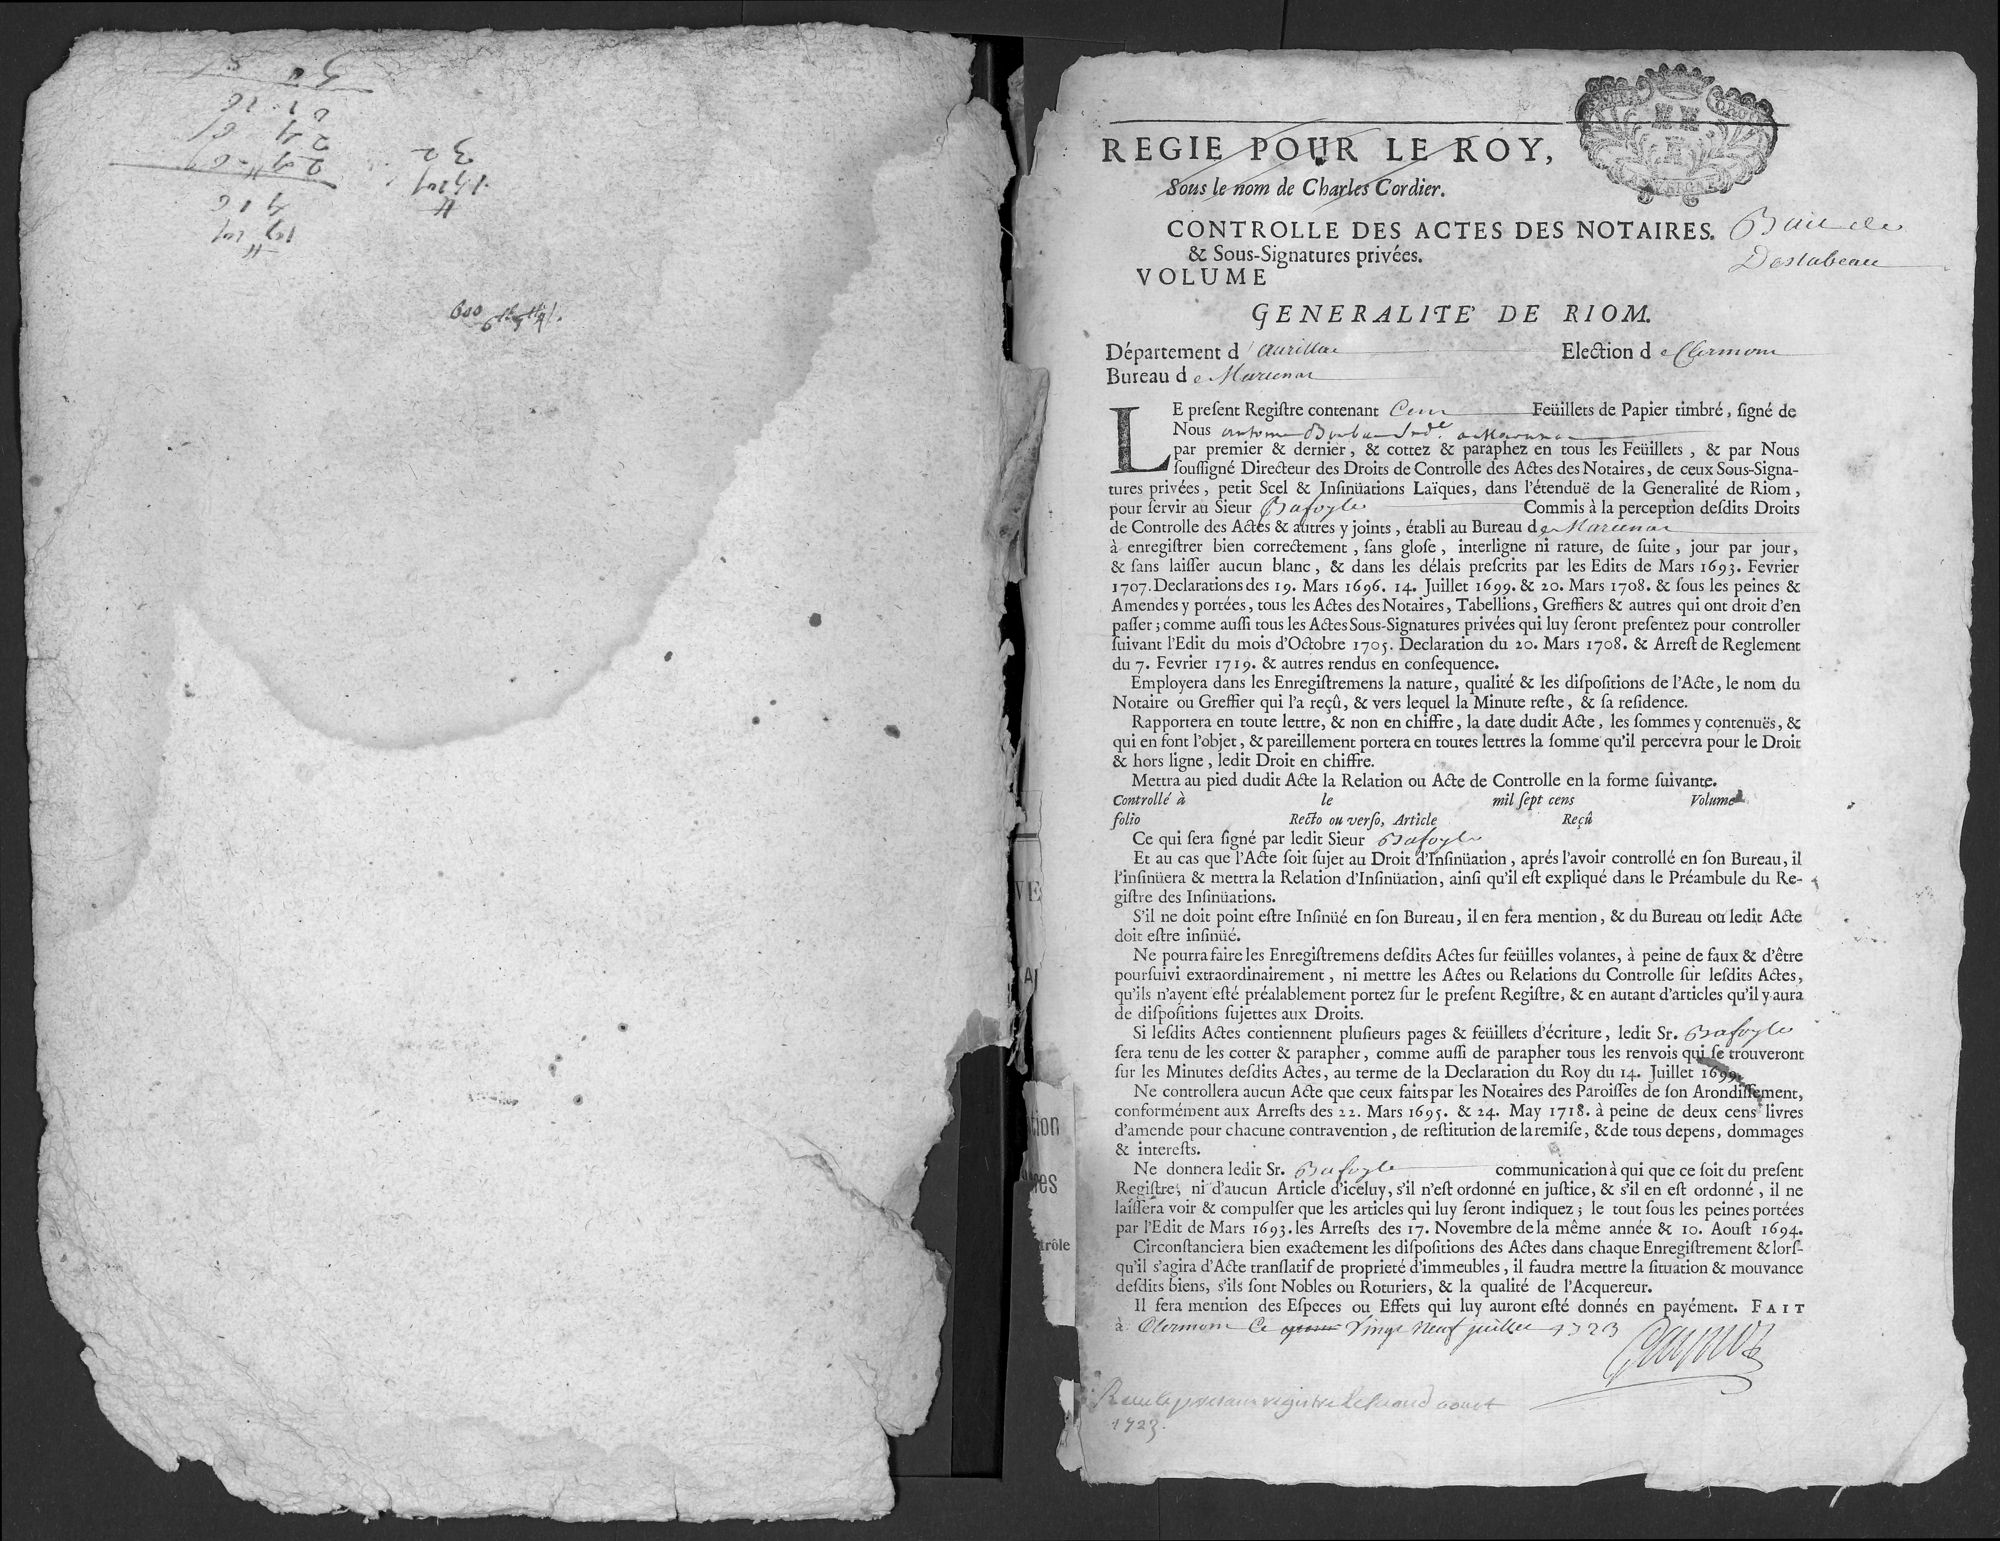 3
32
1
600
REGIE POUR LE ROY,
Sous le nom de Charles Cordier.
CONTROLLE DES ACTES DES NOTAIRES. Bail de
& Sous-Signatures privées. Deslabeau
VOLUME
GENERALITE' DE RIOM.
Département d'aurillac Election de Clermont
Bureau de Marcenat
LE preſent Regiſtre contenant Cent Feüillets de Papier timbré, ſigné de
Nous
par premier & dernier, & cottez & paraphez en tous les Feüillets, & par Nous
ſouſſigné Directeur des Droits de Controlle des Actes des Notaires, de ceux Sous-Signa-
tures privées, petit Scel & Inſinüations Laïques, dans l'étenduë de la Generalité de Riom,
pour ſervir au Sieur Bafoyle Commis à la perception deſdits Droits
de Controlle des Actes & autres y joints, établi au Bureau de Marcenat
à enregiſtrer bien correctement, ſans gloſe, interligne ni rature, de ſuite, jour par jour,
& ſans laiſſer aucun blanc, & dans les délais preſcrits par les Edits de Mars 1693. Fevrier
1707. Declarations des 19. Mars 1696. 14. Juillet 1699. & 20. Mars 1708. & ſous les peines &
Amendes y portées, tous les Actes des Notaires, Tabellions, Greffiers & autres qui ont droit d'en
paſſer; comme auſſi tous les Actes Sous-Signatures privées qui luy ſeront preſentez pour controller
ſuivant l'Edit du mois d'Octobre 1705. Declaration du 20. Mars 1708. & Arreſt de Reglement
du 7. Fevrier 1719. & autres rendus en conſequence.
Employera dans les Enregiſtremens la nature, qualité & les diſpoſitions de l'Acte, le nom du
Notaire ou Greffier qui l'a reçû, & vers lequel la Minute reſte, & ſa reſidence.
Rapportera en toute lettre, & non en chiffre, la date dudit Acte, les ſommes y contenuës, &
qui en font l'objet, & pareillement portera en toutes lettres la ſomme qu'il percevra pour le Droit
& hors ligne, ledit Droit en chiffre.
Mettra au pied dudit Acte la Relation ou Acte de Controlle en la forme ſuivante.
Controllé à le mil ſept cens Volume
folio Recto ou verſo, Article Reçû
Ce qui ſera ſigné par ledit Sieur Bafoyle
Et au cas que l'Acte ſoit ſujet au Droit d'Inſinüation, aprés l'avoir controllé en ſon Bureau, il
l'inſinüera & mettra la Relation d'Inſinüation, ainſi qu'il eſt expliqué dans le Préambule du Re-
giſtre des Inſinüations.
S'il ne doit point eſtre Inſinüé en ſon Bureau, il en fera mention, & du Bureau où ledit Acte
doit eſtre inſinüé.
Ne pourra faire les Enregiſtremens deſdits Actes ſur feüilles volantes, à peine de faux & d'être
pourſuivi extraordinairement, ni mettre les Actes ou Relations du Controlle ſur leſdits Actes,
qu'ils n'ayent eſté préalablement portez ſur le preſent Regiſtre, & en autant d'articles qu'il y aura
de diſpoſitions ſujettes aux Droits.
Si leſdits Actes contiennent pluſieurs pages & feüillets d'écriture, ledit Sr. Bafoyle
ſera tenu de les cotter & parapher, comme auſſi de parapher tous les renvois qui ſe trouveront
ſur les Minutes deſdits Actes, au terme de la Declaration du Roy du 14. Juillet 1699.
Ne controllera aucun Acte que ceux faits par les Notaires des Paroiſſes de ſon Arondiſſement,
conformément aux Arreſts des 22. Mars 1695. & 24. May 1718. à peine de deux cens livres
d'amende pour chacune contravention, de reſtitution de la remiſe, & de tous depens, dommages
& intereſts.
Ne donnera ledit Sr. Bafoyle communication à qui que ce ſoit du preſent
Regiſtre, ni d'aucun Article d'iceluy, s'il n'eſt ordonné en juſtice, & s'il en eſt ordonné, il ne
laiſſera voir & compulſer que les articles qui luy ſeront indiquez; le tout ſous les peines portées
par l'Edit de Mars 1693. les Arreſts des 17. Novembre de la même année & 10. Aouſt 1694.
Circonſtanciera bien exactement les diſpoſitions des Actes dans chaque Enregiſtrement & lorſ-
qu'il s'agira d'Acte tranſlatif de proprieté d'immeubles, il faudra mettre la ſituation & mouvance
deſdits biens, s'ils ſont Nobles ou Roturiers, & la qualité de l'Acquereur.
Il fera mention des Eſpeces ou Effets qui luy auront eſté donnés en payément. FAIT
à Clermont Ce Vingt Neuf juillet 1723
Receu le present registre le second aoust
1723.
VE
A
tion
trôle